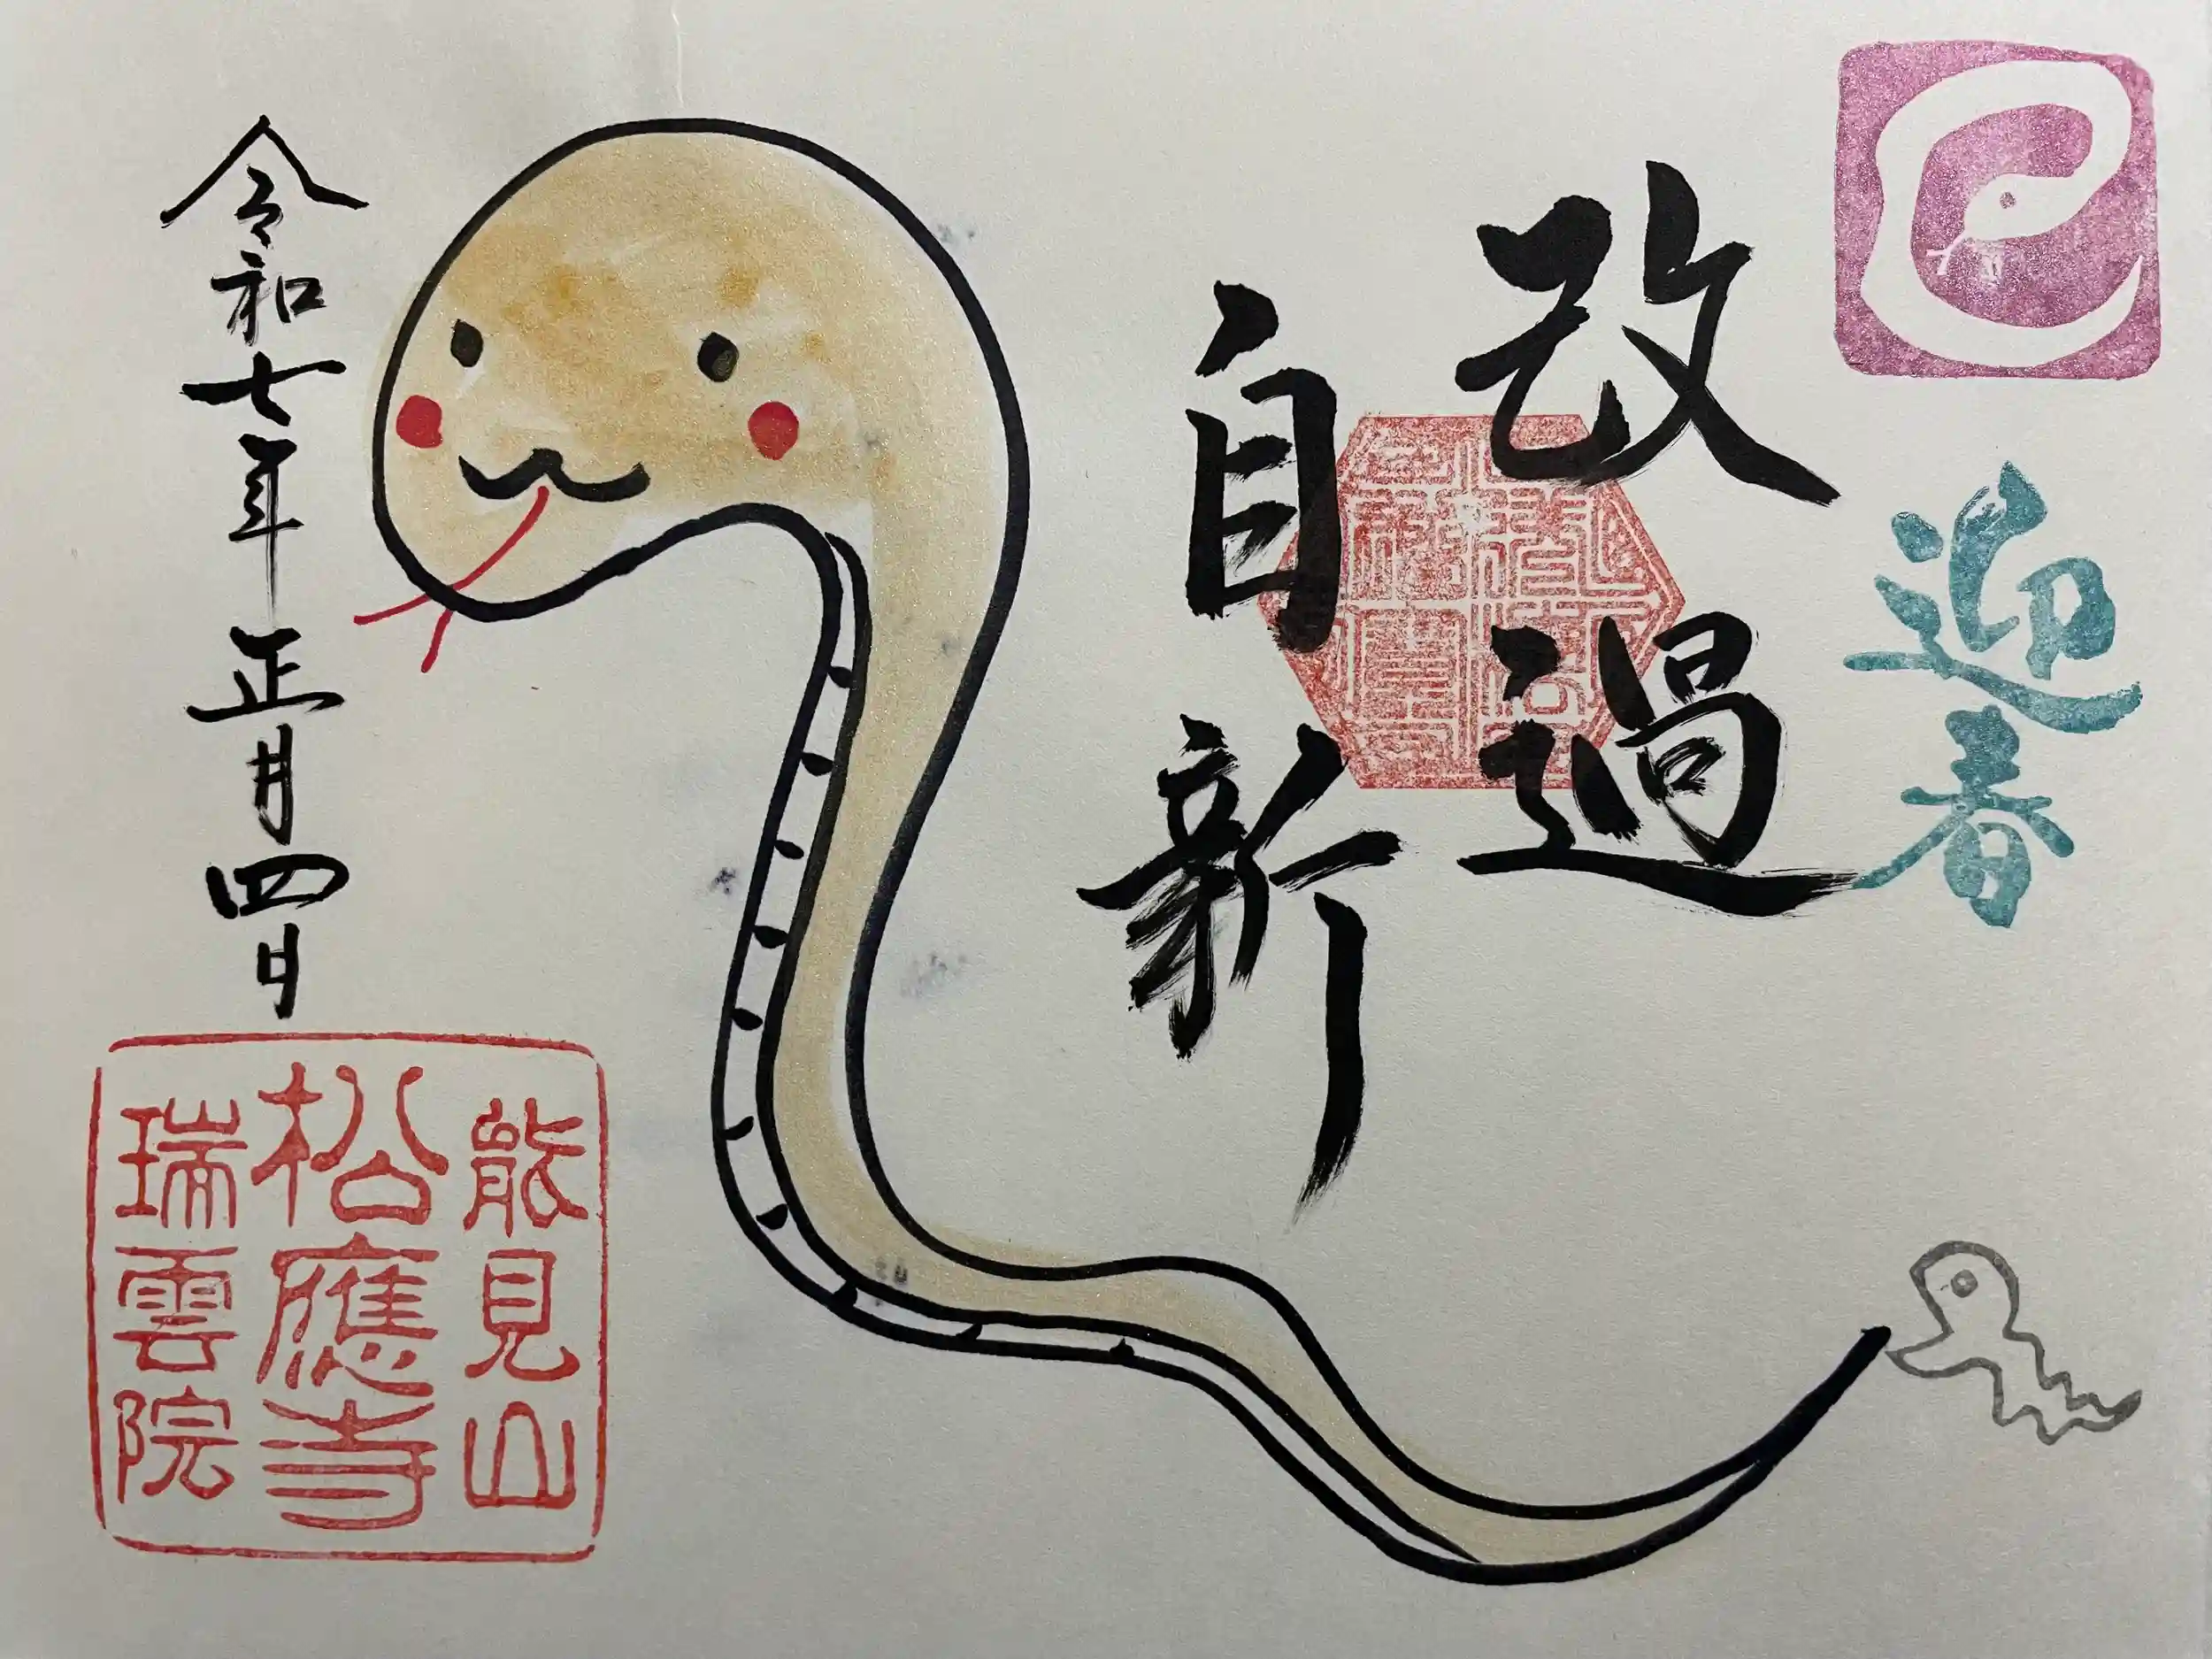 迎春
改過
自新
令和七年正月四日
能見山
松應寺
瑞雲院